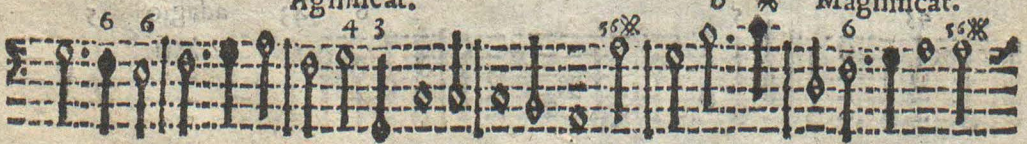 Agnificat. Magnificat.
6 6 4 3 56※ 6 ※ 6 56※